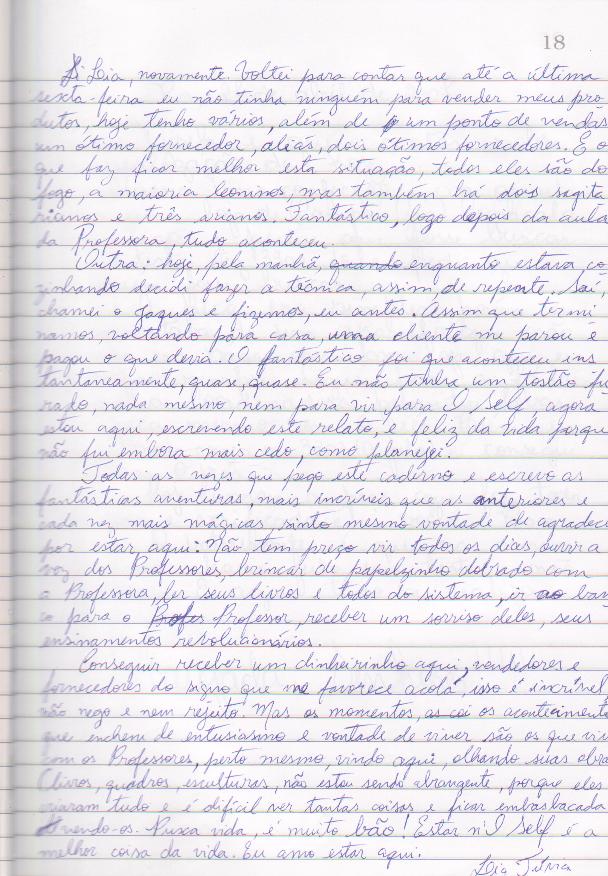 18
Lia, novamente. Voltei para contar que até a última
sexta-feira eu não tinha ninguém para vender meus pro
dutos, hoje tenho vários, além de um ponto de vendas
um ótimo fornecedor, aliás, dois ótimos fornecedores. E o
que faz ficar melhor esta situação, todos eles são do
fogo, a maioria leoninos, mas também há dois sagita
rianos e três arianos. Fantástico, logo depois da aula
da Professora, tudo aconteceu.
Outra: hoje, pela manhã, quando enquanto estava, co
zinhando decidi fazer a técnica, assim, de repente. Saí,
chamei o Jaques e fizemos, eu antes. Assim que termi
namos, voltando para casa, uma cliente me parou e
pagou o que devia. O fantástico foi que aconteceu ins
tantaneamente, quase, quase. Eu não tinha um tostão fu
rado, nada mesmo, nem para vir para I Self, agora
estou aqui, escrevendo este relato, e feliz da vida porque
não fui embora mais cedo, como planejei.
Todas as vezes que pego este caderno e escrevo as
fantásticas aventuras, mais incríveis que as anteriores e
cada vez mais mágicas, sinto mesmo vontade de agradece
por estar aqui: Não tem preço vir todos os dias, ouvir a
voz dos Professores, brincar de papelzinho dobrado com
a Professora, ler seus livros e todos do sistema, ir ao ban
co para o Profes Professor, receber um sorriso deles, seus
ensinamentos revolucionários.
Conseguir receber um dinheirinho aqui, vendedores e
fornecedores do signo que me favorece acolá, isso é incrível
não nego e nem rejeito. Mas os momentos, as coi os acontecimento
que enchem de entusiasmo e vontade de viver são os que viv
com os Professores, perto mesmo, vindo aqui, olhando suas obra
(livros, quadros, esculturas, não estou sendo abrangente, porque eles
criaram tudo e é difícil ver tantas coisas e ficar embasbacada
vendo-os. Puxa vida, é muito bão! Estar n'I Self é a
melhor coisa da vida. Eu amo estar aqui.
Lia